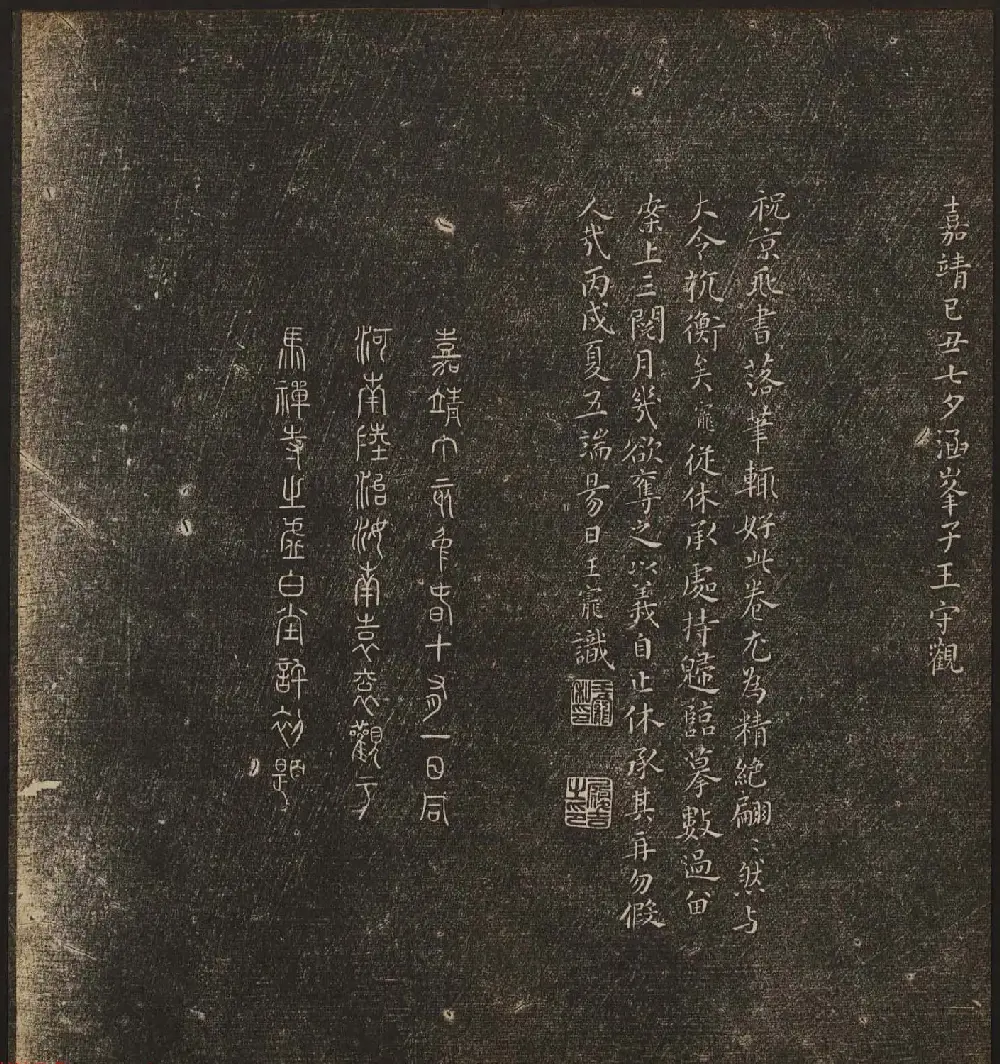 嘉靖己丑七夕涵峯子王守觀
祝京兆書落筆輒好此卷尤為精絕翩〻然与
大令抗衡矣寵從休承處持歸臨摹數過留
案上三閱月幾欲奪之以義自止休承其再勿假
人哉丙戌夏五端昜日王寵識
王寵私印
履吉之印
嘉靖丁亥年春十有一日同
河南陸治汝南袁袠觀于
馬禪寺之虛白室許初題